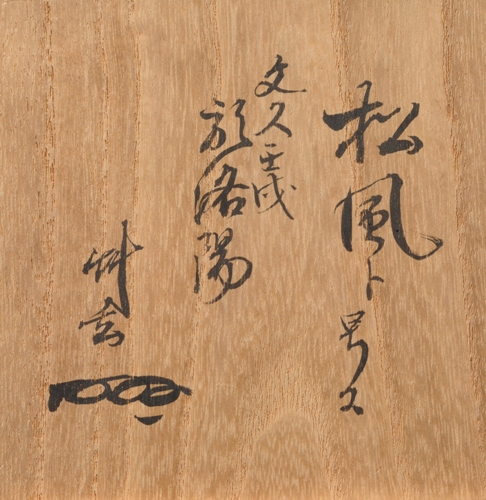 松風ト号ス
文久壬戌
於洛陽